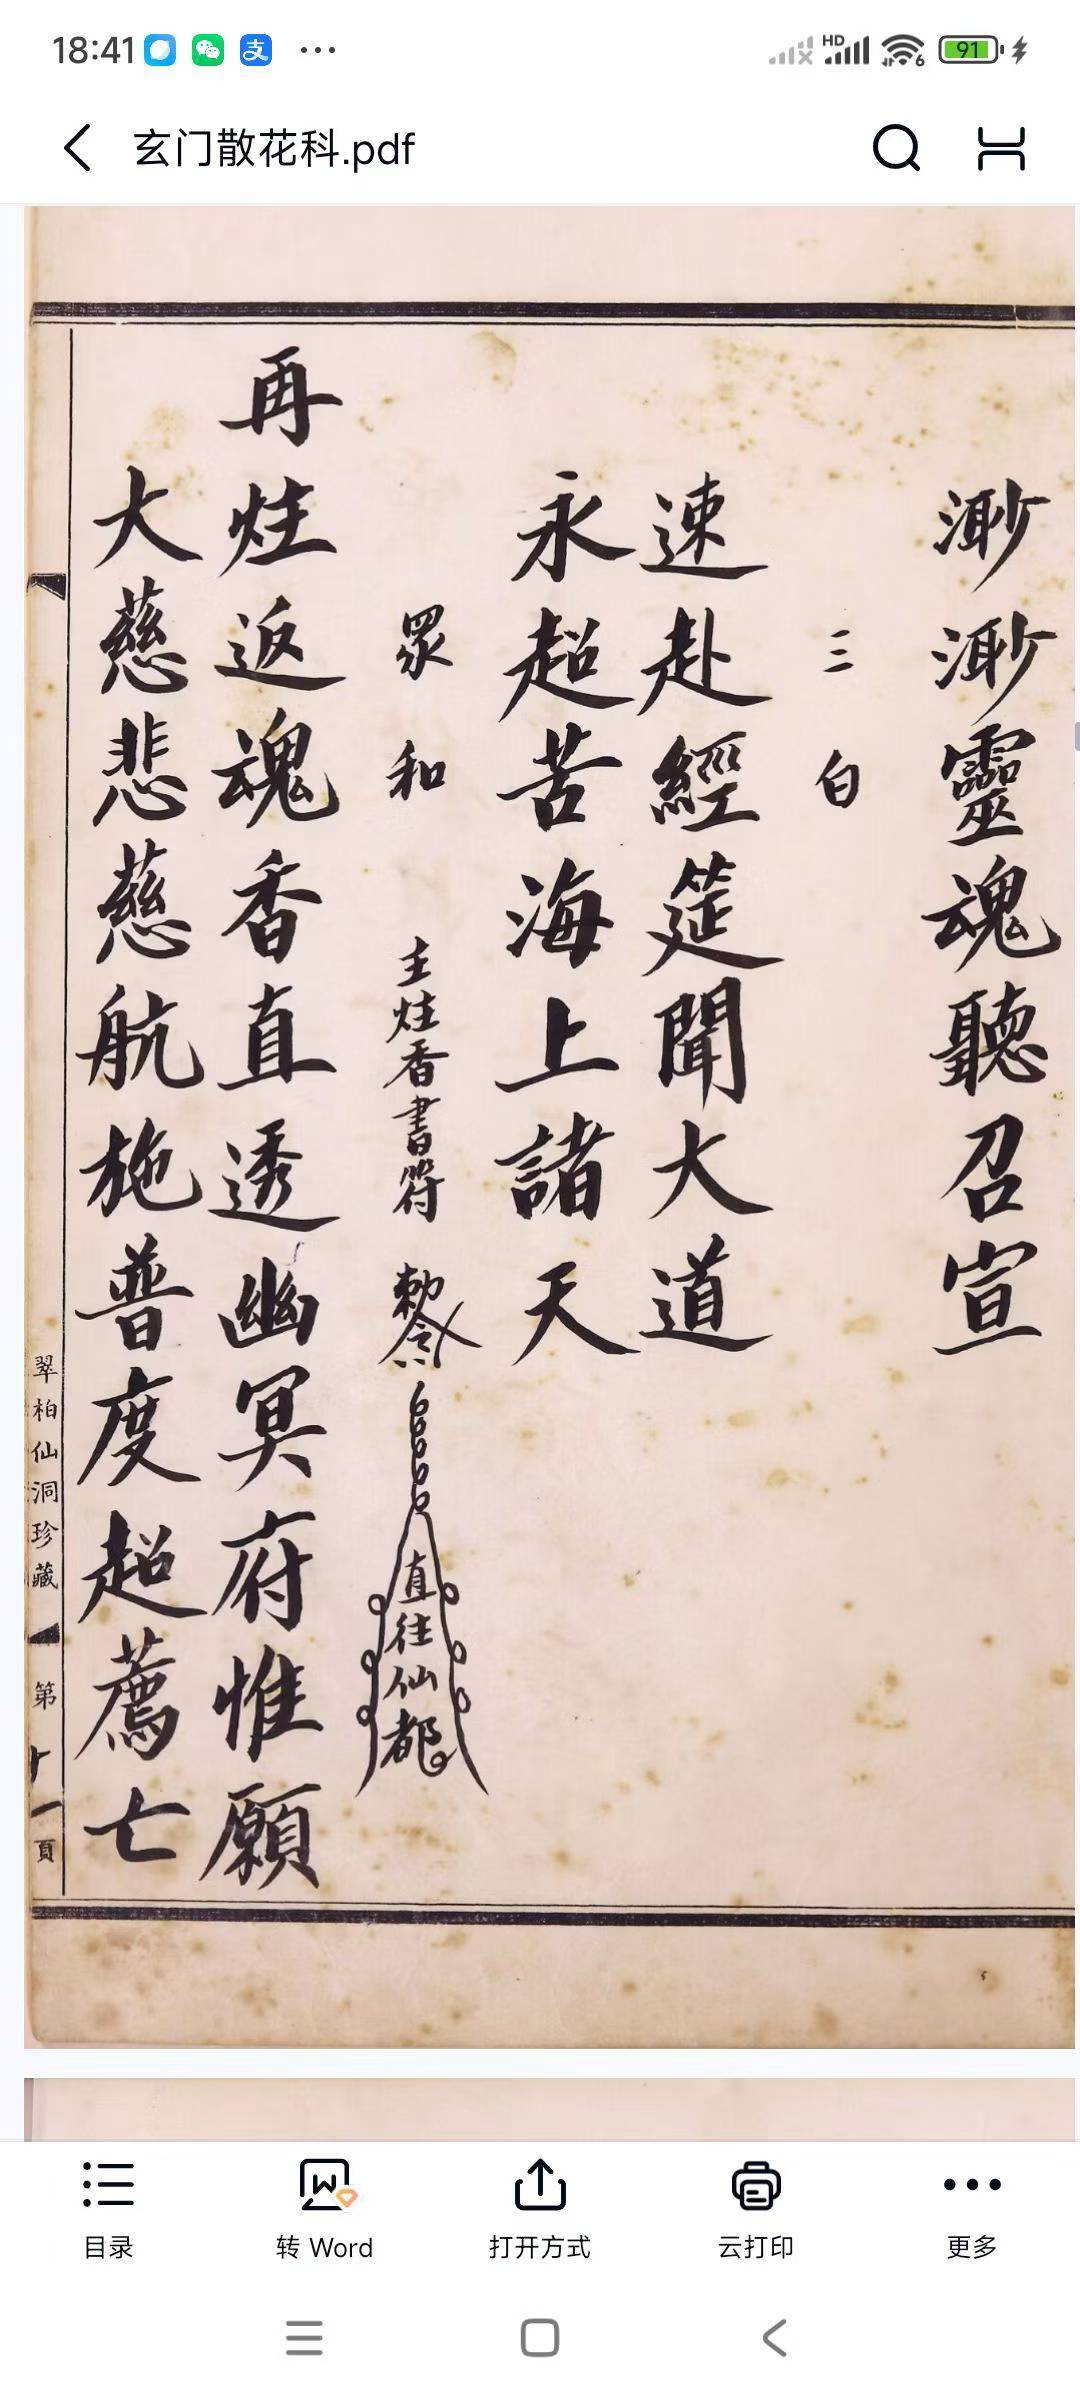 18:41
HD
6
91
玄门散花科.pdf
渺渺靈魂聽召宣
三白
速赴經筵聞大道
永超苦海上諸天
眾和
主炷香書符
勅令
直往仙都
再炷返魂香直透幽冥府惟願
大慈悲慈航施普度超薦亡
翠柏仙洞珍藏
第十一頁
目录
转 Word
打开方式
云打印
更多